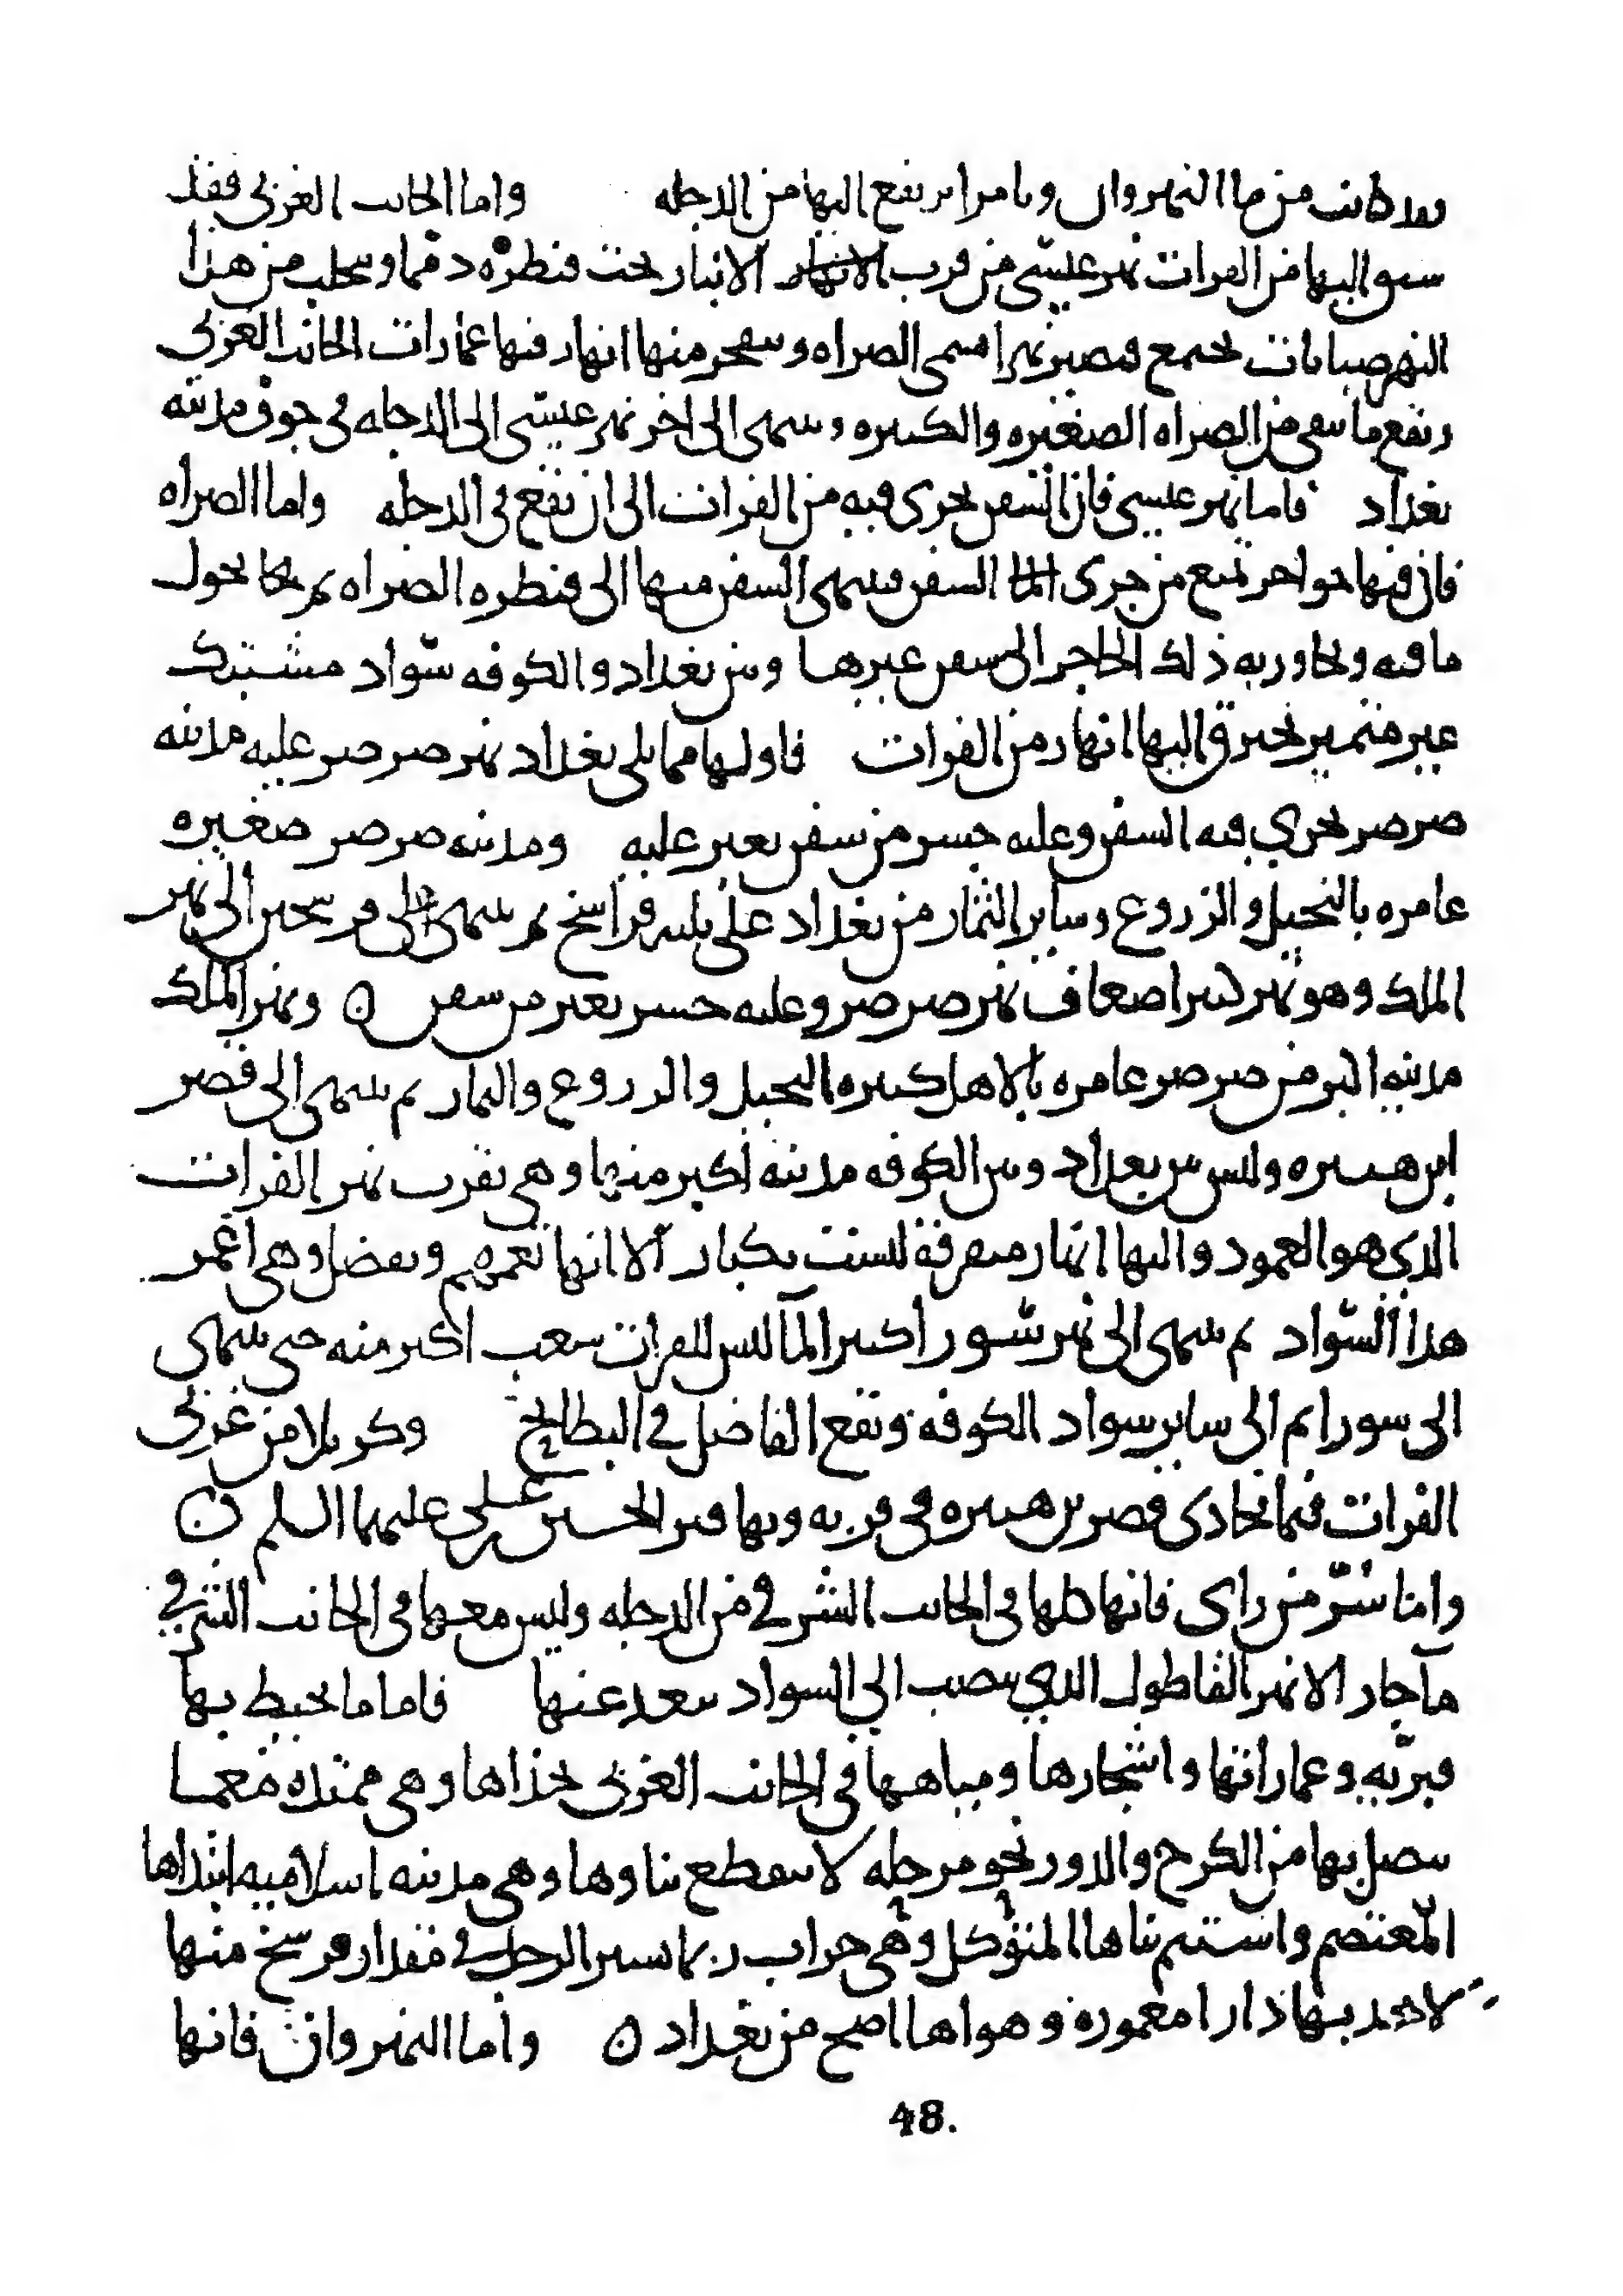 كانت من ما النهروان وتامرا يرتفع اليها من الدجله واما الجانب الغربى فقد
اليها من الفرات نهر عيسى من قرب الانبار تحت قنطره دمما ويتحلب من هذا
النهر صبابات تجتمع فيصير نهرا يسمى الصراه ويتفجر منها انهار فبها عمارات الجانب الغربى
ويقع ما يبقى من الصراه الصغيره والكبيره وينتهى الى اخر نهر عيسى الى الدجله فى جوف مدينه
بغداد فاما نهر عيسى فان السفن تجرى فيه من الفرات الى ان تقع فى الدجله واما الصراه
فان فيها حواجز تمنع من جرى السفن فينتهى السفن منها الى قنطره الصراه ثم يحول
ما فيه ويجاوز به ذلك الحاجز الى سفن غيرها وبين بغداد والكوفه سواد مشتبك
غير متميز تخترق اليها انهار من الفرات فاولها مما يلى بغداد نهر صرصر عليه مدينه
صرصر تجرى فيه السفن وعليه جسر من سفن يعبر عليه ومدينه صرصر صغيره
عامره بالنخيل والزروع وساير الثمار من بغداد على ثلثه فراسخ ثم ينتهى على فرسخين الى نهر
الملك وهو نهر كبير اضعاف نهر صرصر وعليه جسر يعبر من سفن ○ ونهر الملك
مدينه اكبر من صرصر عامره بالاهل كثيره النخيل والزروع والثمار ثم ينتهى الى قصر
ابن هبيره وليس بين بغداد وبين الكوفه مدينه اكبر منها وهى بقرب نهر الفرات
الذى هو العمود واليها انهار متفرقة ليست بكبار الا انها تعمرهم وتفضل وهى اعمر
هذا السواد ثم ينتهى الى نهر سورا كثير الما ليس للفرات شعب اكبر منه حتى ينتهى
الى سورا ثم الى ساير سواد الكوفة ويقع الفاضل فى البطايح وكربلا من غربى
الفرات فيما يحاذى قصر بن هبيره فى قريه وبها قبر الحسين بن على عليهما السلم ○
واما سر من راى فانها كلها فى الجانب الشرقى من الدجله وليس معها فى الجانب الشرقى
ما جار الا نهر القاطول الذى يصب الى السواد يبعد عنها فاما ما يحيط بها
فبريه وعماراتها واشجارها ومياهها فى الجانب الغربى بحذاها وهى ممتده
يتصل بها من الكرخ والدور نحو مرحله لا ينقطع بناوها وهى مدينه اسلاميه ابتداها
المعتصم واستتم بناها المتوكل وهى خراب ربما يسير الرجل فى مقدار فرسخ منها
لا يجد بها دارا معموره وهواها اصح من بغداد ○ واما النهروان فانها
48.